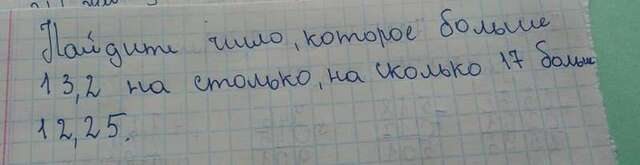 Найдите число, которое больше
13,2 на столько, на сколько 17 больше
12,25.